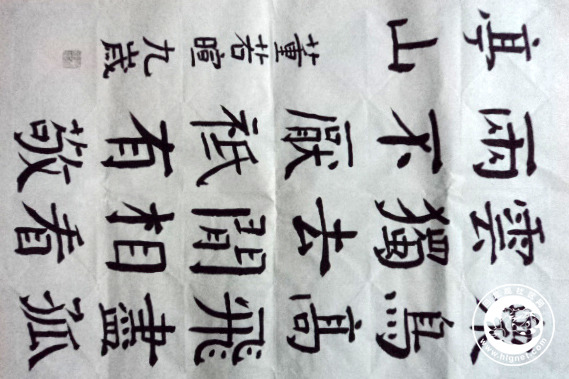 鳥高飛盡孤
雲獨去閒相看
兩不厭祗有敬
亭山
董若暄
九歲
www.hlgnet.com